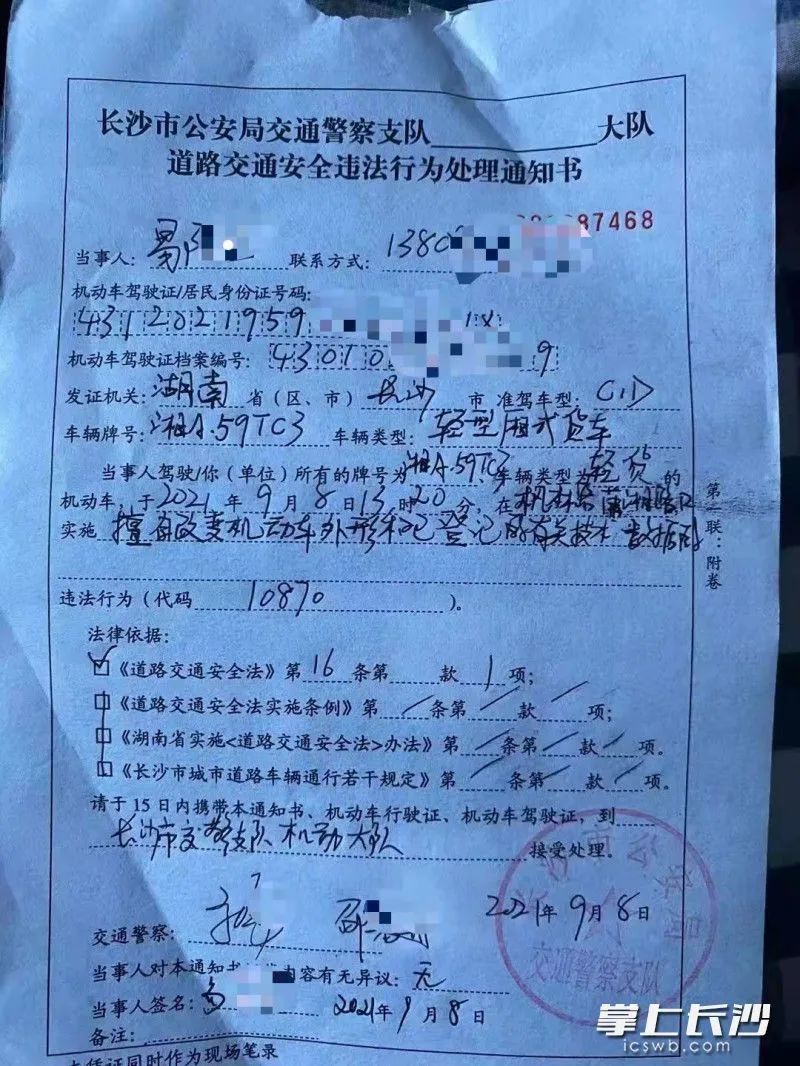 长沙市公安局交通警察支队 大队
道路交通安全违法行为处理通知书
87468
当事人: 易 联系方式: 1380
机动车驾驶证/居民身份证号码:
4312021959
机动车驾驶证档案编号: 43010 9
发证机关: 湖南 省(区、市) 长沙 市 准驾车型: C1D
车辆牌号: 湘A.59TC3 车辆类型: 轻型厢式货车
当事人驾驶/你(单位)所有的牌号为 湘A.59TC3、车辆类型为 轻货 的
机动车,于 2021 年 9 月 8 日 13 时 20 分,在
实施 擅自改变机动车外形和已登记的有关技术数据的
违法行为(代码 10870 )。
法律依据:
☑《道路交通安全法》第 16 条第 款 1 项;
□《道路交通安全法实施条例》第 / 条第 / 款 / 项;
□《湖南省实施<道路交通安全法>办法》第 / 条第 / 款 / 项。
□《长沙市城市道路车辆通行若干规定》第 / 条第 / 款 / 项。
请于 15 日内携带本通知书、机动车行驶证、机动车驾驶证,到
长沙市交警支队机动大队 接受处理。
2021年9月8日
交通警察:
交通警察支队
当事人对本通知书 内容有无异议: 无
当事人签名: 易 2021年9月8日
备注:
本凭证同时作为现场笔录
第一联:附卷
掌上长沙
icswb.com